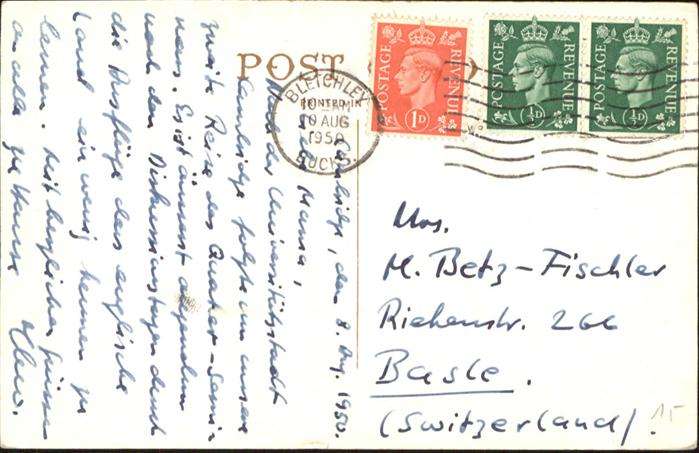 POST
PRINTED IN
BLETCHLEY
10 AUG
1950
BUCKS.
POSTAGE REVENUE
1D
POSTAGE REVENUE
½D
POSTAGE REVENUE
½D
Cambridge, den 8. Aug. 1950.
Liebe Mama,
der Universitätsstadt
Cambridge folgt nun unsere
zweite Reise des Quaker-Semi-
nars. Es ist äusserst angenehm
nach den Diskussionstagen durch
die Ausflüge das englische
Land ein wenig kennen zu
lernen. Mit herzlichen Grüssen
an alle zu Hause
Mrs.
M. Betz-Fischler
Riehenstr. 266
Basle.
(Switzerland)!
15